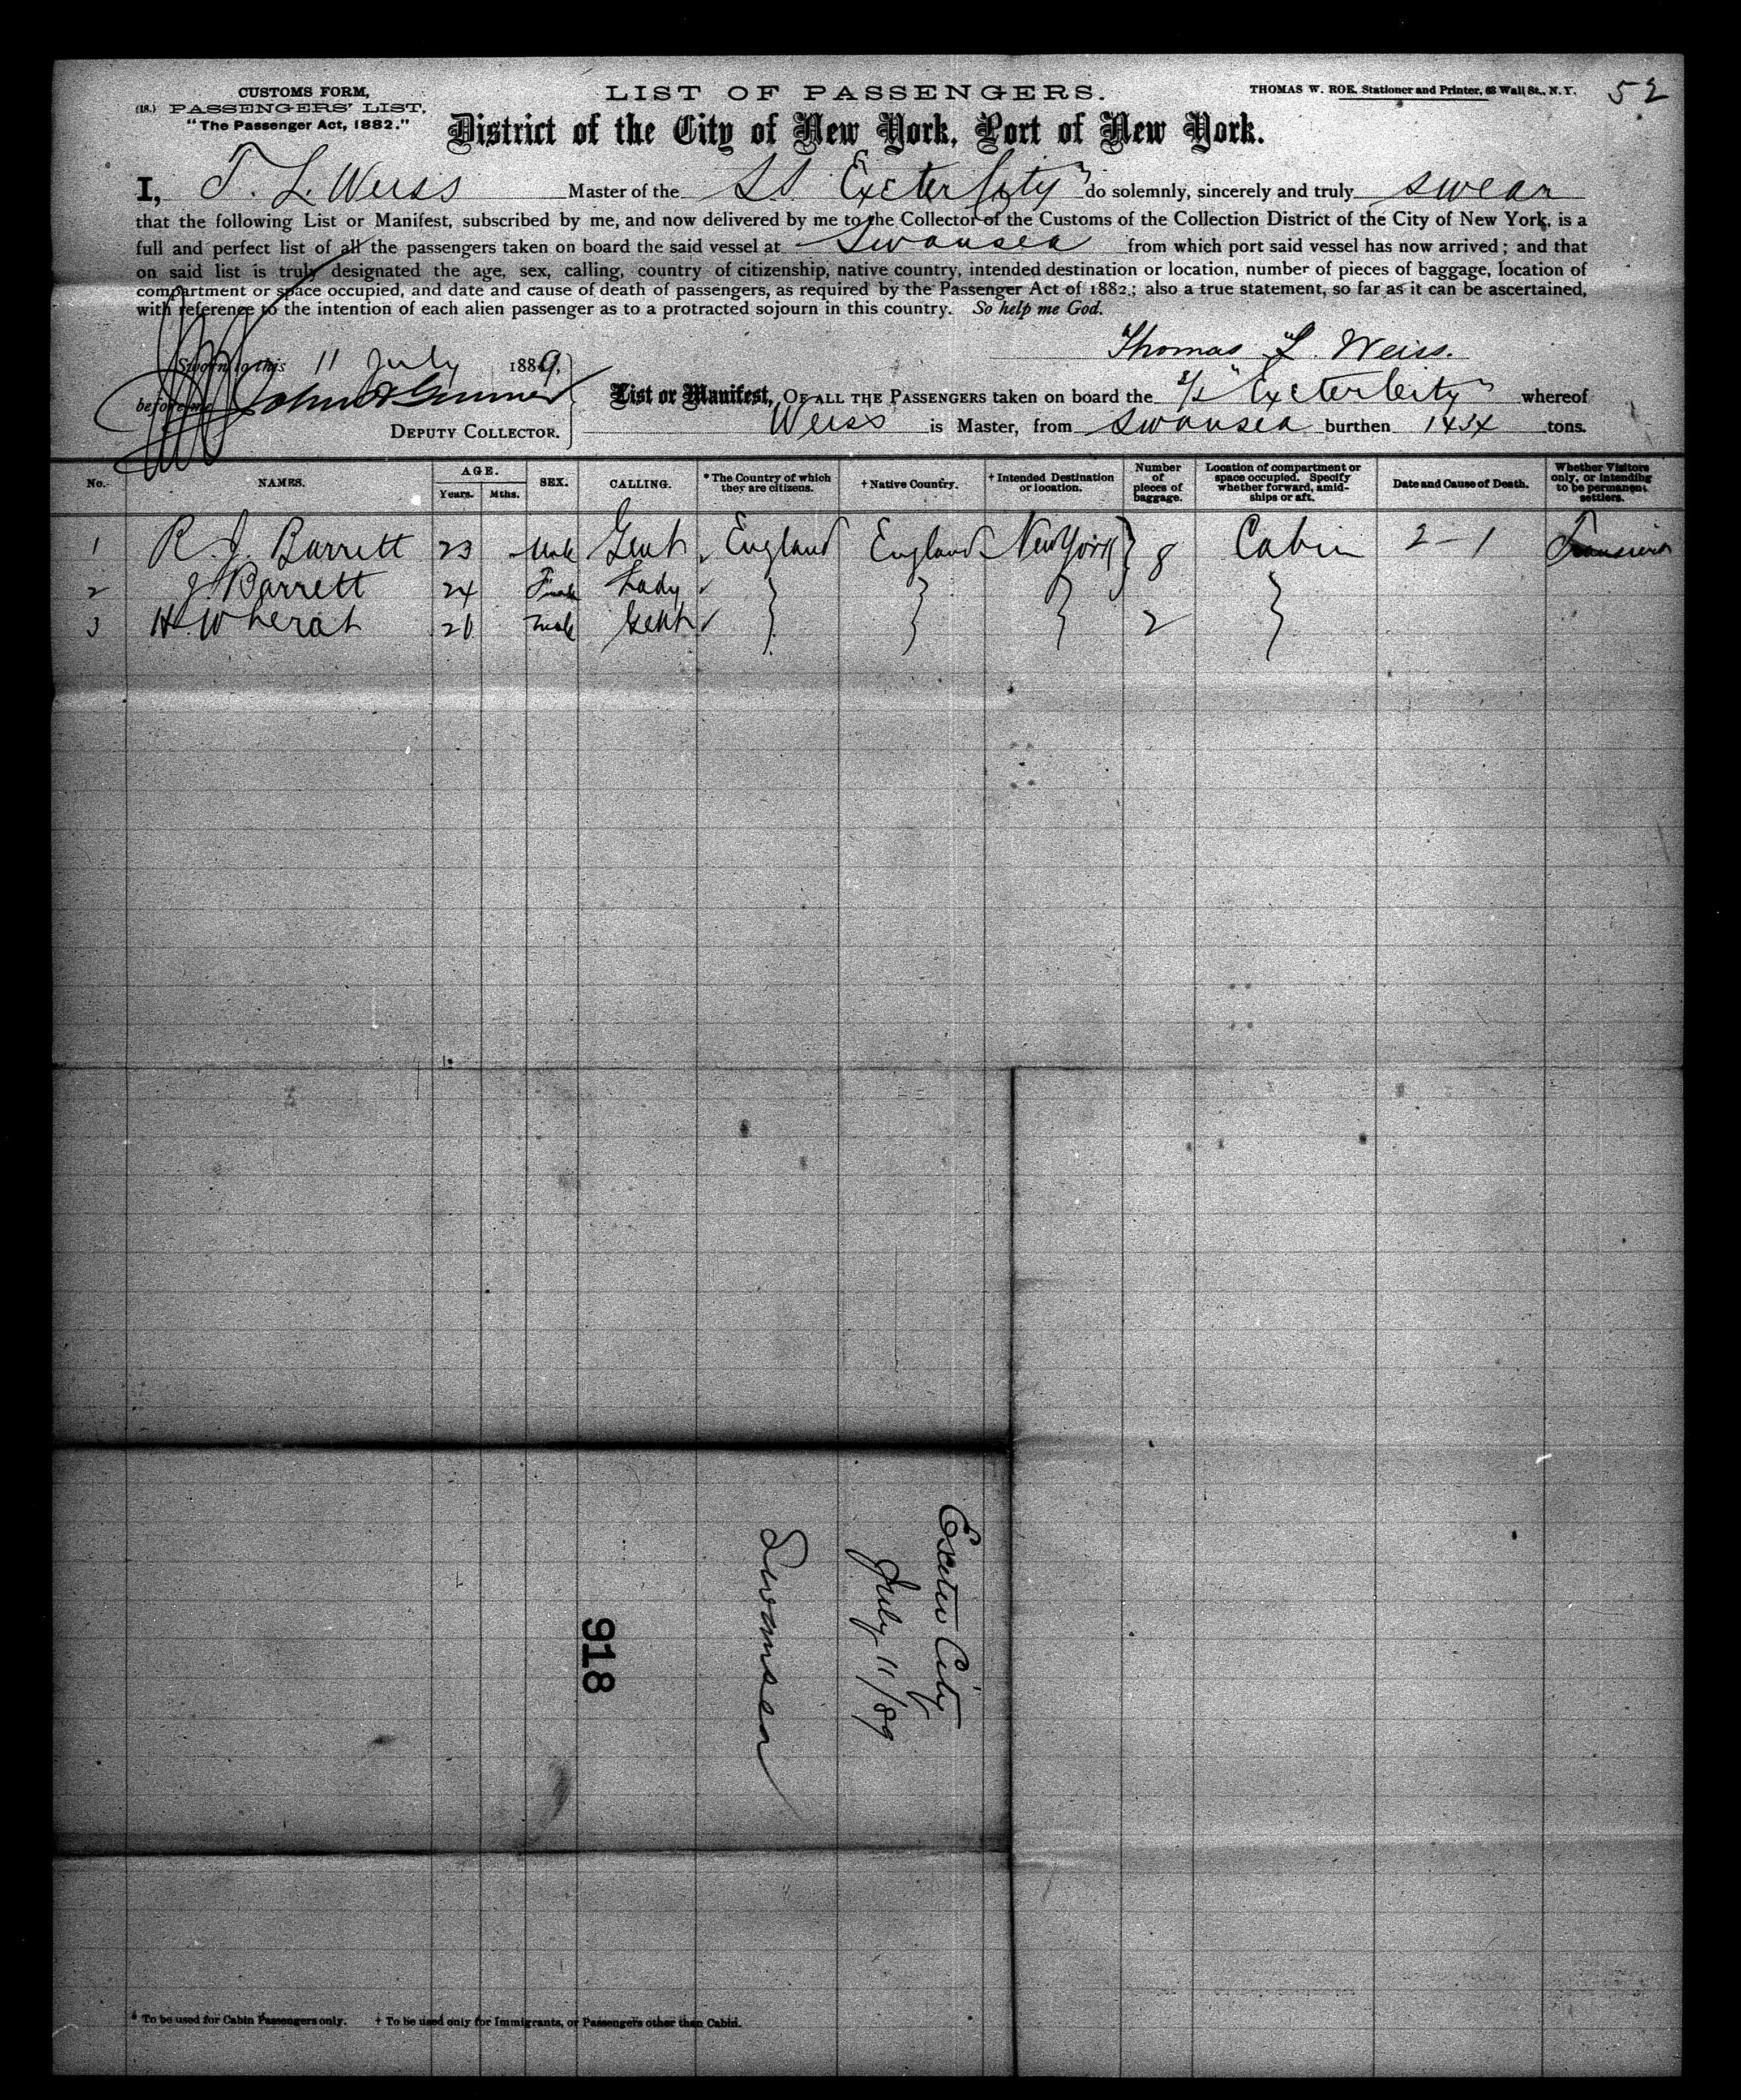 CUSTOMS FORM,
(18.) PASSENGERS' LIST,
"The Passenger Act, 1882."
LIST OF PASSENGERS.
THOMAS W. ROE, Stationer and Printer, 63 Wall St., N. Y.
52
District of the City of New York, Port of New York.
I, T. L. Weiss Master of the SS "Exeter City" do solemnly, sincerely and truly swear
that the following List or Manifest, subscribed by me, and now delivered by me to the Collector of the Customs of the Collection District of the City of New York, is a
full and perfect list of all the passengers taken on board the said vessel at Swansea from which port said vessel has now arrived; and that
on said list is truly designated the age, sex, calling, country of citizenship, native country, intended destination or location, number of pieces of baggage, location of
compartment or space occupied, and date and cause of death of passengers, as required by the Passenger Act of 1882; also a true statement, so far as it can be ascertained,
with reference to the intention of each alien passenger as to a protracted sojourn in this country. So help me God.
Thomas L. Weiss.
Sworn to this 11 July 1889,
before me John
DEPUTY COLLECTOR.
List or Manifest, OF ALL THE PASSENGERS taken on board the s/s "Exeter City" whereof
Weiss is Master, from Swansea burthen 1434 tons.
No. NAMES. AGE. Years. Mths. SEX. CALLING. * The Country of which they are citizens. † Native Country. † Intended Destination or location. Number of pieces of baggage. Location of compartment or space occupied. Specify whether forward, amidships or aft. Date and Cause of Death. Whether Visitors only, or intending to be permanent settlers.
1 R. J. Barrett 23 Male Gent England England New York } 8 Cabin 2-1 Transient
2 J Barrett 24 Female Lady
3 H. Wherat 21 male Gent 2
Exeter City
July 11/89
Swansea
918
* To be used for Cabin Passengers only. † To be used only for Immigrants, or Passengers other than Cabin.